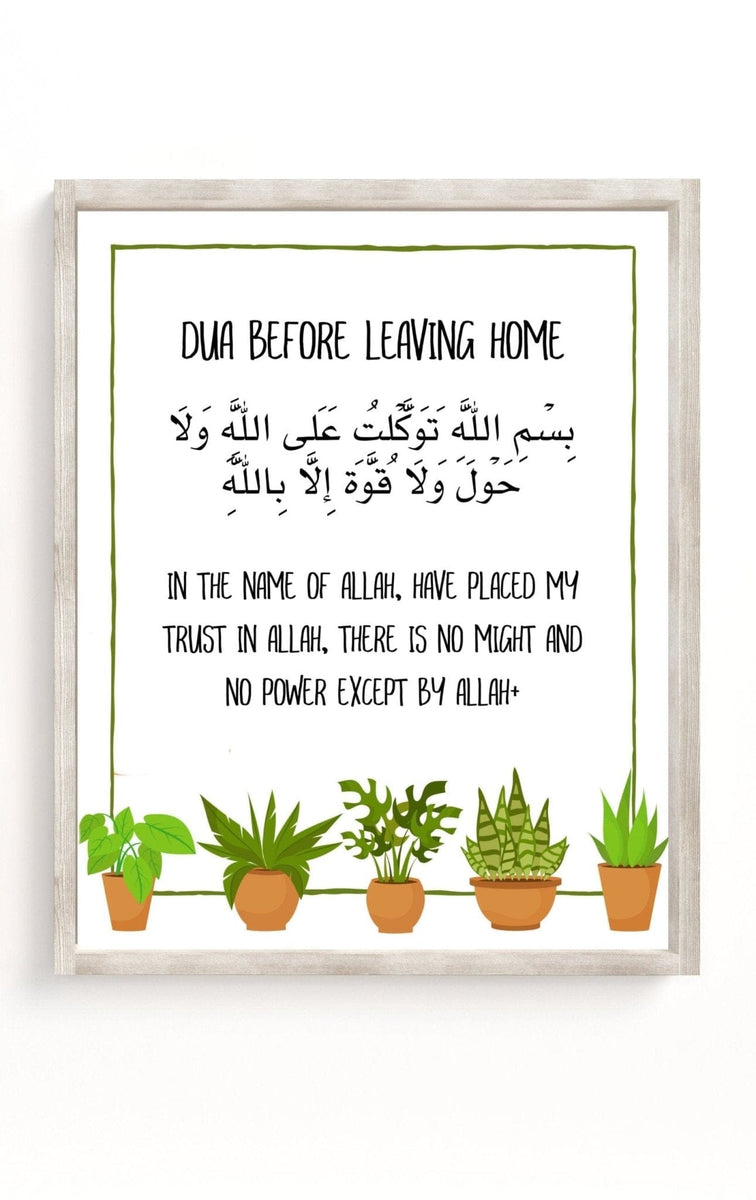 DUA BEFORE LEAVING HOME
بِسْمِ اللَّهِ تَوَكَّلتُ عَلَى اللَّهِ وَلَا
حَوْلَ وَلَا قُوَّةَ إِلَّا بِاللَّهِ
IN THE NAME OF ALLAH, HAVE PLACED MY
TRUST IN ALLAH, THERE IS NO MIGHT AND
NO POWER EXCEPT BY ALLAH+